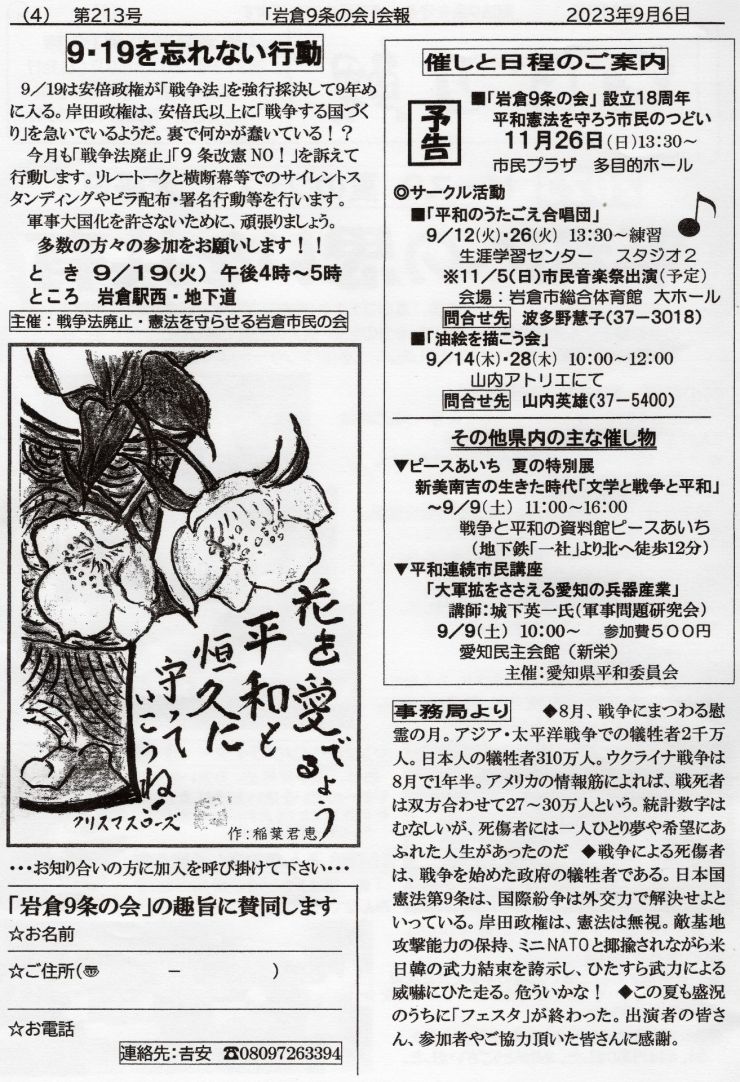 (4) 第213号 「岩倉9条の会」会報 2023年9月6日
9・19を忘れない行動
9/19は安倍政権が「戦争法」を強行採決して9年め
に入る。岸田政権は、安倍氏以上に「戦争する国づく
り」を急いでいるようだ。裏で何かが蠢いている!?
今月も「戦争法廃止」「9条改憲NO!」を訴えて
行動します。リレートークと横断幕等でのサイレントス
タンディングやビラ配布・署名行動等を行います。
軍事大国化を許さないために、頑張りましょう。
多数の方々の参加をお願いします!!
とき 9/19(火) 午後4時~5時
ところ 岩倉駅西・地下道
主催:戦争法廃止・憲法を守らせる岩倉市民の会
花を愛でるよう
平和も
恒久に
守って
いこうね!
クリスマスローズ
作:稲葉君恵
・・・お知り合いの方に加入を呼び掛けて下さい・・・
「岩倉9条の会」の趣旨に賛同します
☆お名前
☆ご住所(〠 - )
☆お電話
連絡先:吉安 ☎08097263394
催しと日程のご案内
予告
■「岩倉9条の会」設立18周年
平和憲法を守ろう市民のつどい
11月26日(日)13:30~
市民プラザ 多目的ホール
◎サークル活動
■「平和のうたごえ合唱団」
9/12(火)・26(火) 13:30~練習
生涯学習センター スタジオ2
※11/5(日)市民音楽祭出演(予定)
会場:岩倉市総合体育館 大ホール
問合せ先 波多野慧子(37-3018)
■「油絵を描こう会」
9/14(木)・28(木) 10:00~12:00
山内アトリエにて
問合せ先 山内英雄(37-5400)
その他県内の主な催し物
▼ピースあいち 夏の特別展
新美南吉の生きた時代「文学と戦争と平和」
~9/9(土) 11:00~16:00
戦争と平和の資料館ピースあいち
(地下鉄「一社」より北へ徒歩12分)
▼平和連続市民講座
「大軍拡をささえる愛知の兵器産業」
講師:城下英一氏(軍事問題研究会)
9/9(土) 10:00~ 参加費500円
愛知民主会館(新栄)
主催:愛知県平和委員会
事務局より ◆8月、戦争にまつわる慰
霊の月。アジア・太平洋戦争での犠牲者2千万
人。日本人の犠牲者310万人。ウクライナ戦争は
8月で1年半。アメリカの情報筋によれば、戦死者
は双方合わせて27~30万人という。統計数字は
むなしいが、死傷者には一人ひとり夢や希望にあ
ふれた人生があったのだ ◆戦争による死傷者
は、戦争を始めた政府の犠牲者である。日本国
憲法第9条は、国際紛争は外交力で解決せよと
いっている。岸田政権は、憲法は無視。敵基地
攻撃能力の保持、ミニNATOと揶揄されながら米
日韓の武力結束を誇示し、ひたすら武力による
威嚇にひた走る。危ういかな! ◆この夏も盛況
のうちに「フェスタ」が終わった。出演者の皆さ
ん、参加者やご協力頂いた皆さんに感謝。